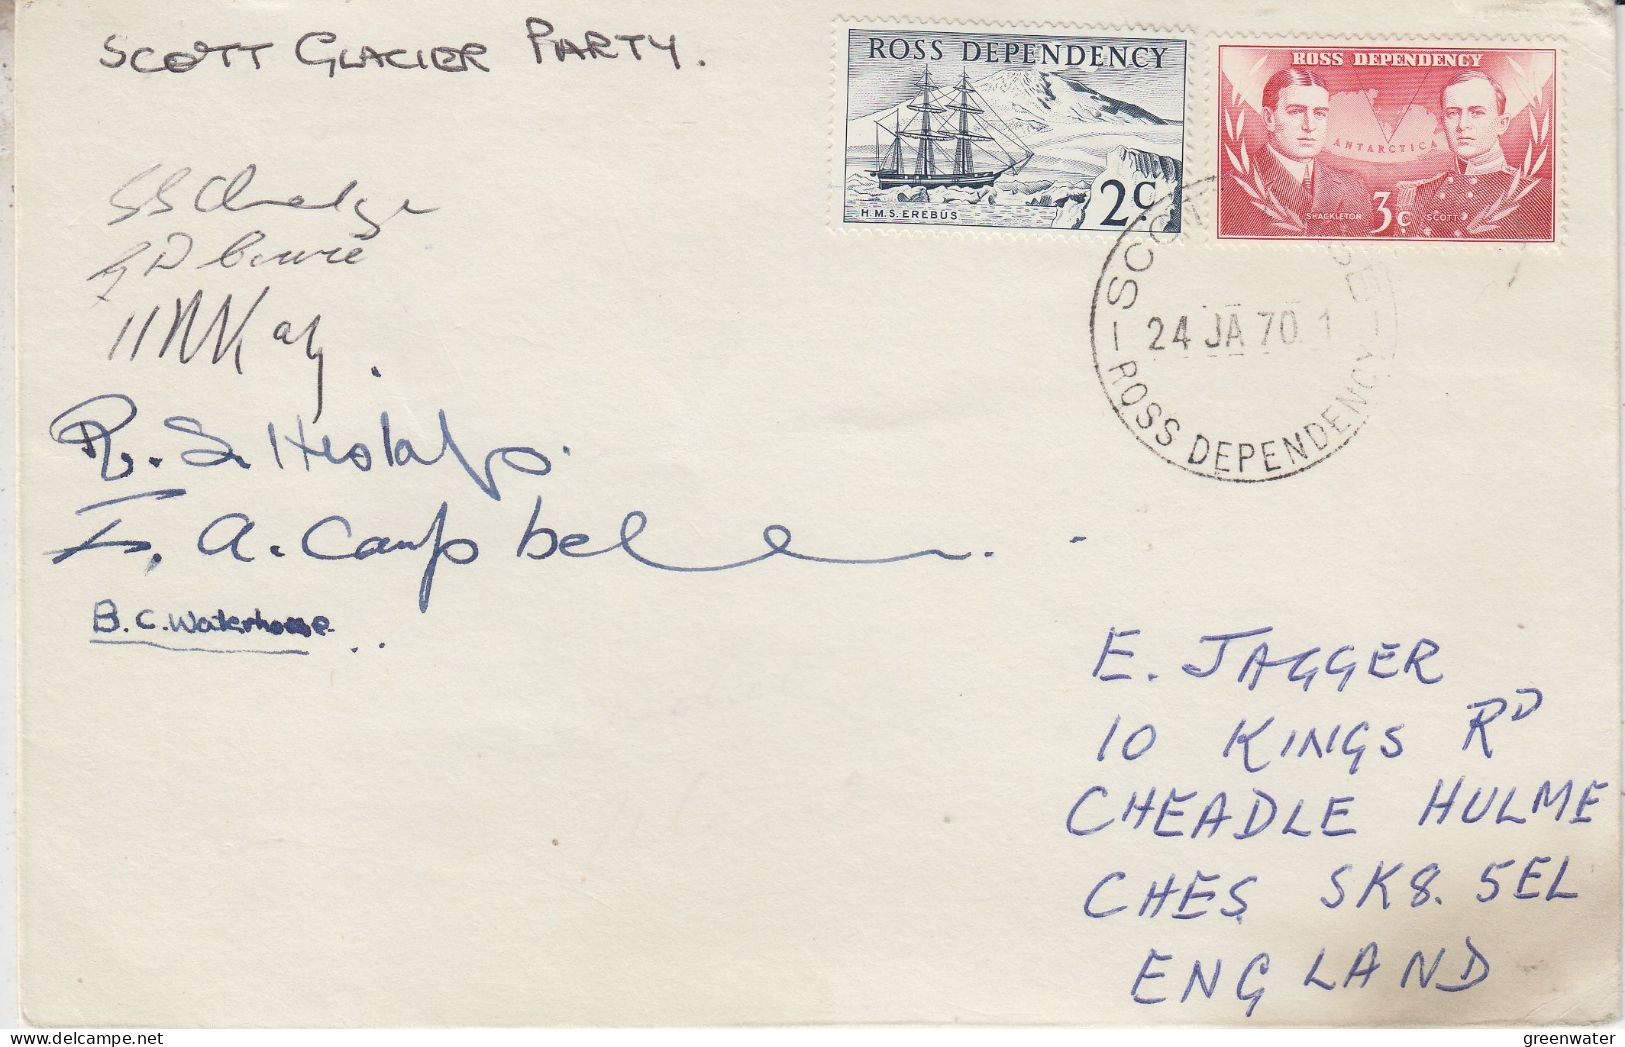 SCOTT GLACIER PARTY.
ROSS DEPENDENCY
H.M.S. EREBUS
2c
ROSS DEPENDENCY
ANTARCTICA
SHACKLETON
3c
SCOTT
SCOTT BASE
24 JA 70 1
ROSS DEPENDENCY
R. S.
I. A. Campbell
B. C. Waterhouse
E. JAGGER
10 KINGS RD
CHEADLE HULME
CHES SK8. 5EL
ENGLAND
greenwater